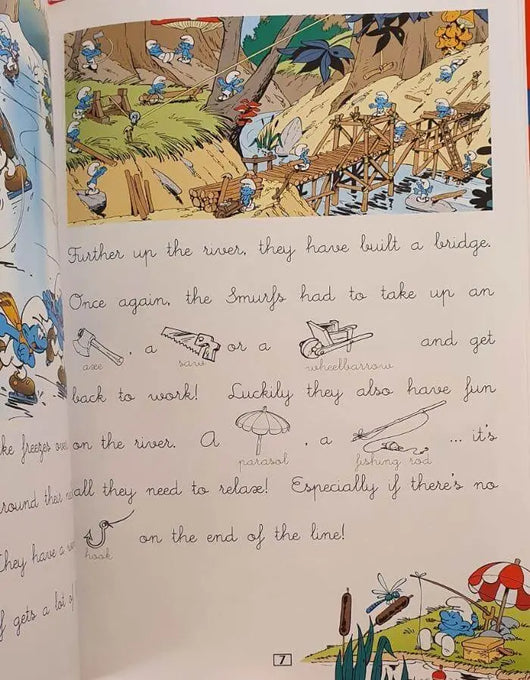 Further up the river, they have built a bridge.
Once again, the Smurfs had to take up an
, a or a and get
axe saw wheelbarrow
back to work! Luckily they also have fun
on the river. A , a ... it's
parasol fishing rod
all they need to relax! Especially if there's no
on the end of the line!
hook
7
freezes over
round their
They have a
gets a lot of